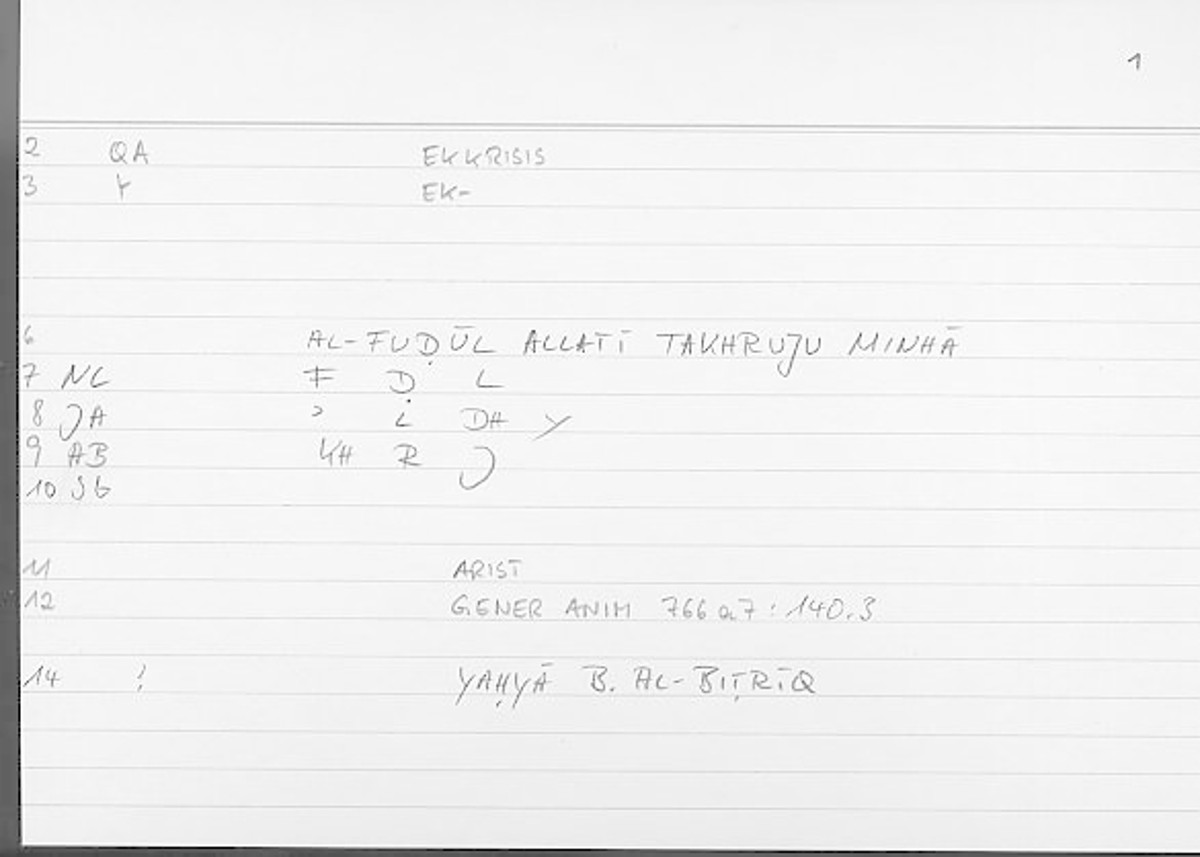 1
2 QA EKKRISIS
3 EK-
6 AL-FUḌŪL ALLATĪ TAKHRUJU MINHĀ
7 NC F Ḍ L
8 JA ʾ L DH Y
9 AB KH R J
10
11 ARIST
12 GENER ANIM 766a7: 140.3
14 ! YAḤYĀ B. AL-BIṬRĪQ